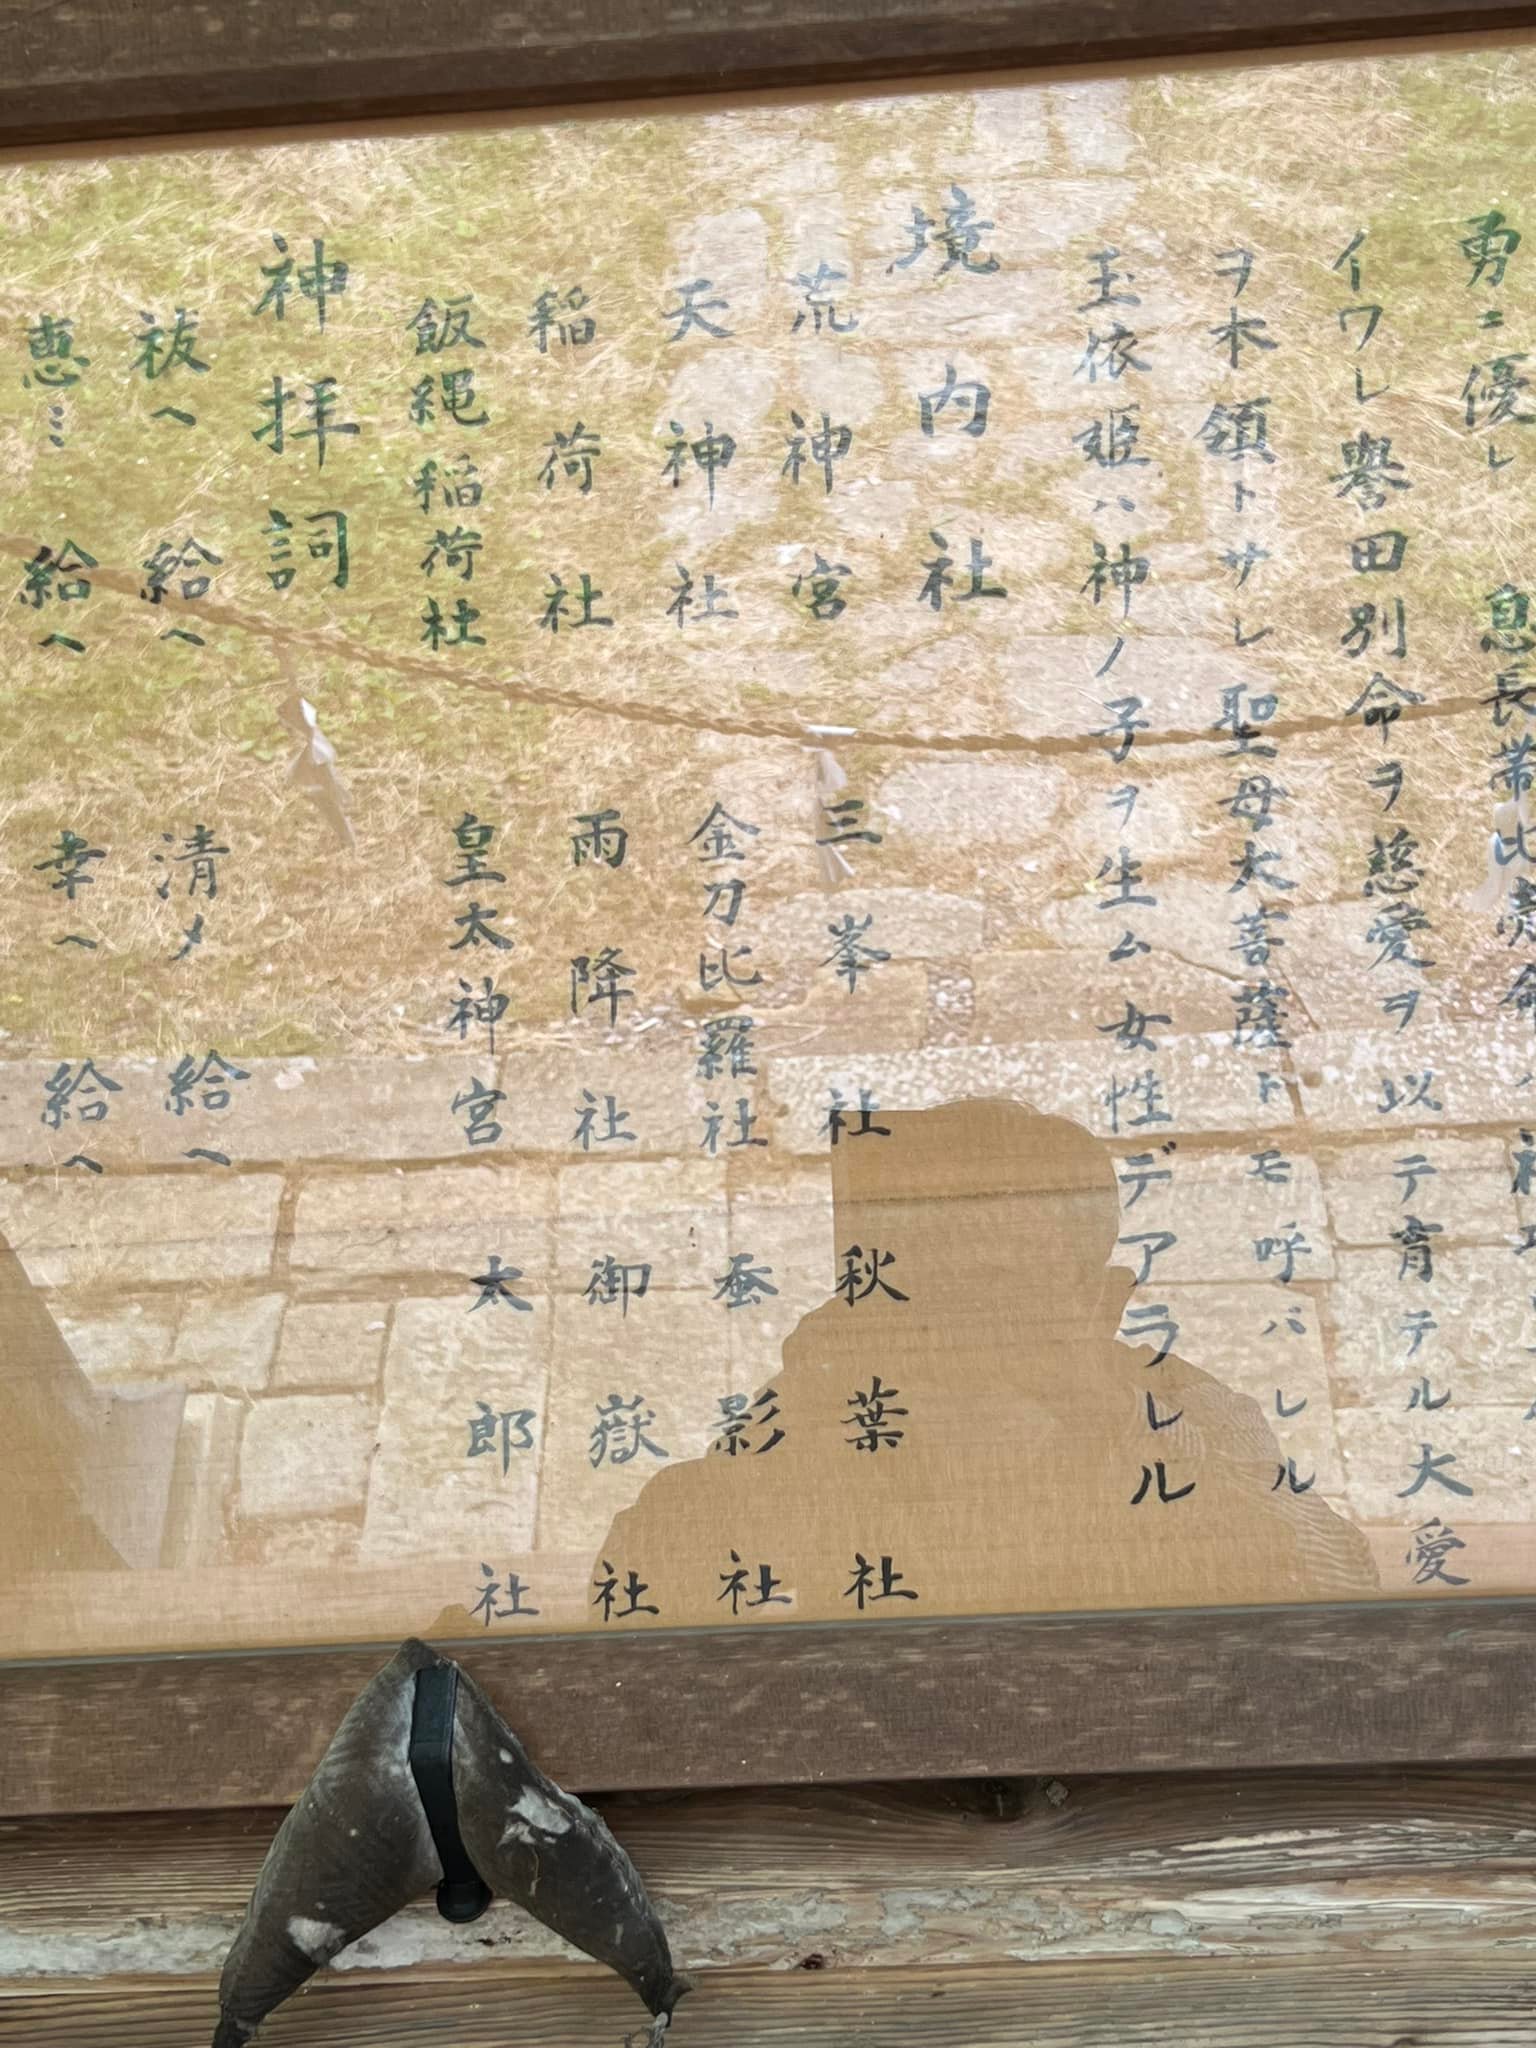 勇ニ優レ 息長帯比売命
イワレ誉田別命ヲ慈愛ヲ以テ育テル大愛
ヲ本領トサレ聖母大菩薩トモ呼バレル
玉依姫ハ神ノ子ヲ生ム女性デアラレル
境内社
荒神宮 三峯社 秋葉社
天神社 金刀比羅社 蚕影社
稲荷社 雨降社 御嶽社
飯縄稲荷社 皇太神宮 太郎社
神拝詞
祓ヘ給ヘ 清メ給ヘ
恵ミ給ヘ 幸ヘ給ヘ